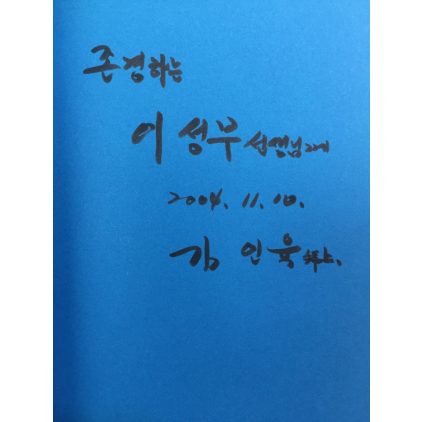 존경하는
이성부 선생님께
2004. 11. 10.
김인육 拜上.